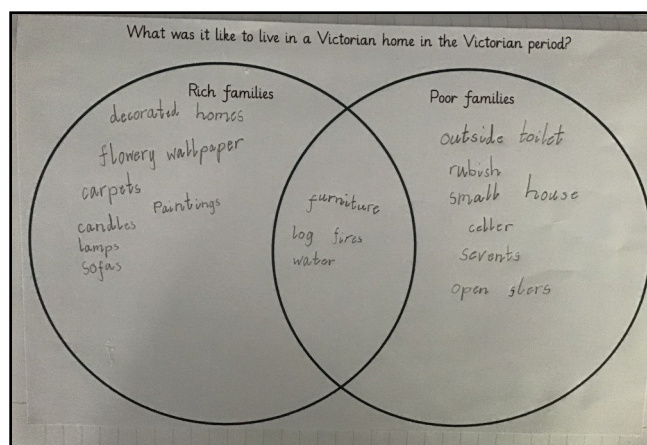 What was it like to live in a Victorian home in the Victorian period?
Rich families
decorated homes
flowery wallpaper
carpets
Paintings
candles
lamps
sofas
furniture
log fires
water
Poor families
outside toilet
rubish
small house
celler
servents
open